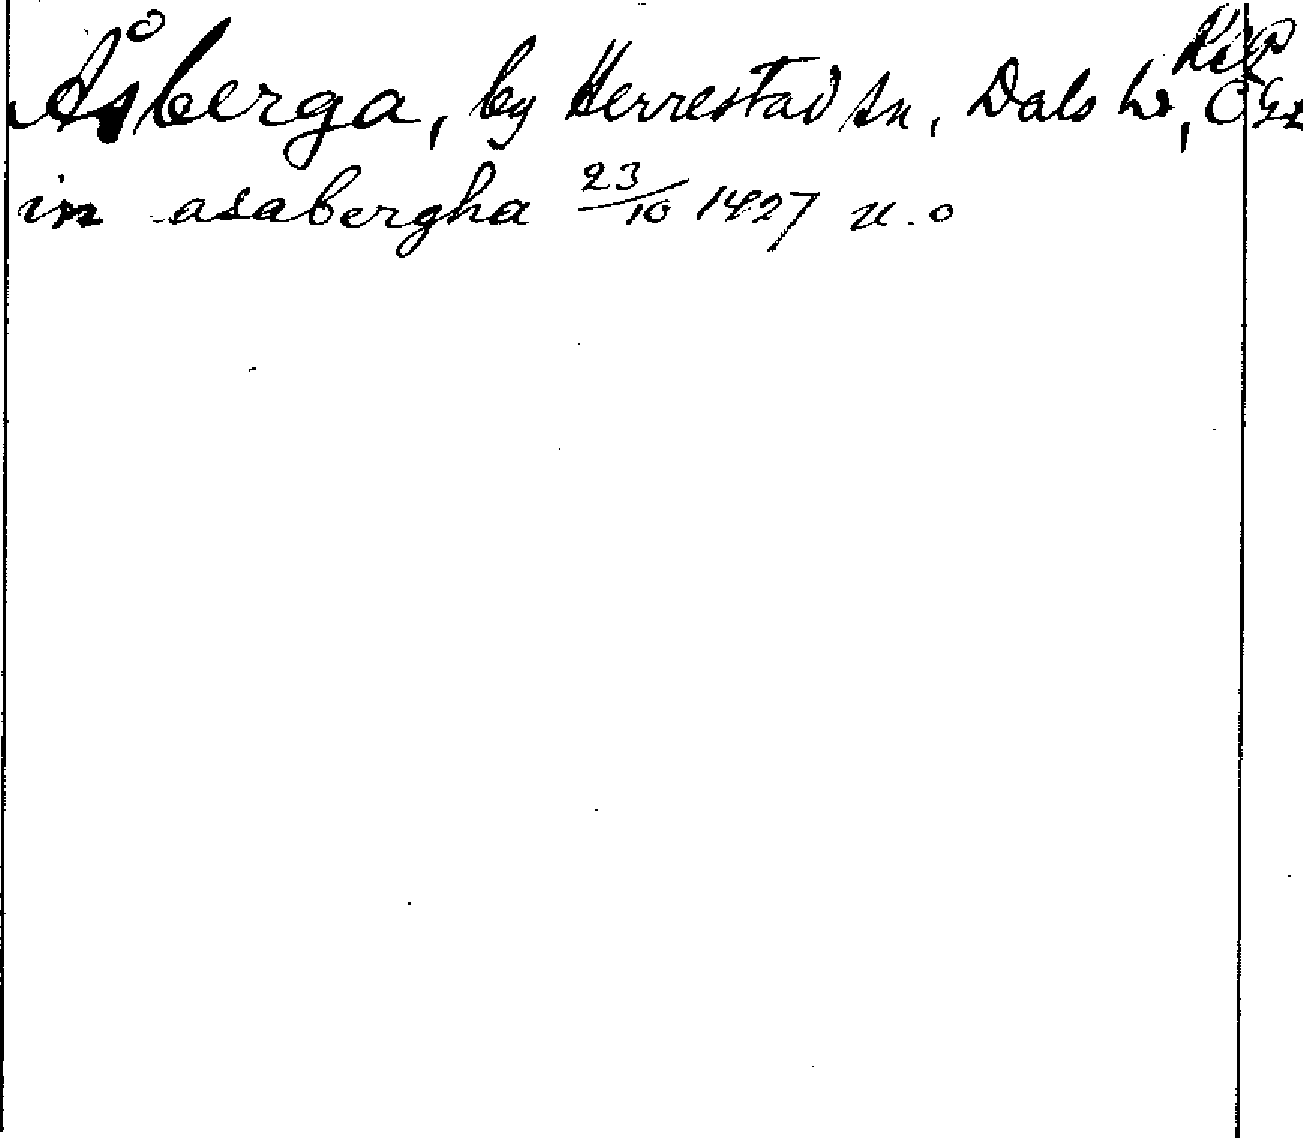 Åsberga, by Herrestad sn, Dals hd, ÖGL
in asabergha 23/10 1427 u.o